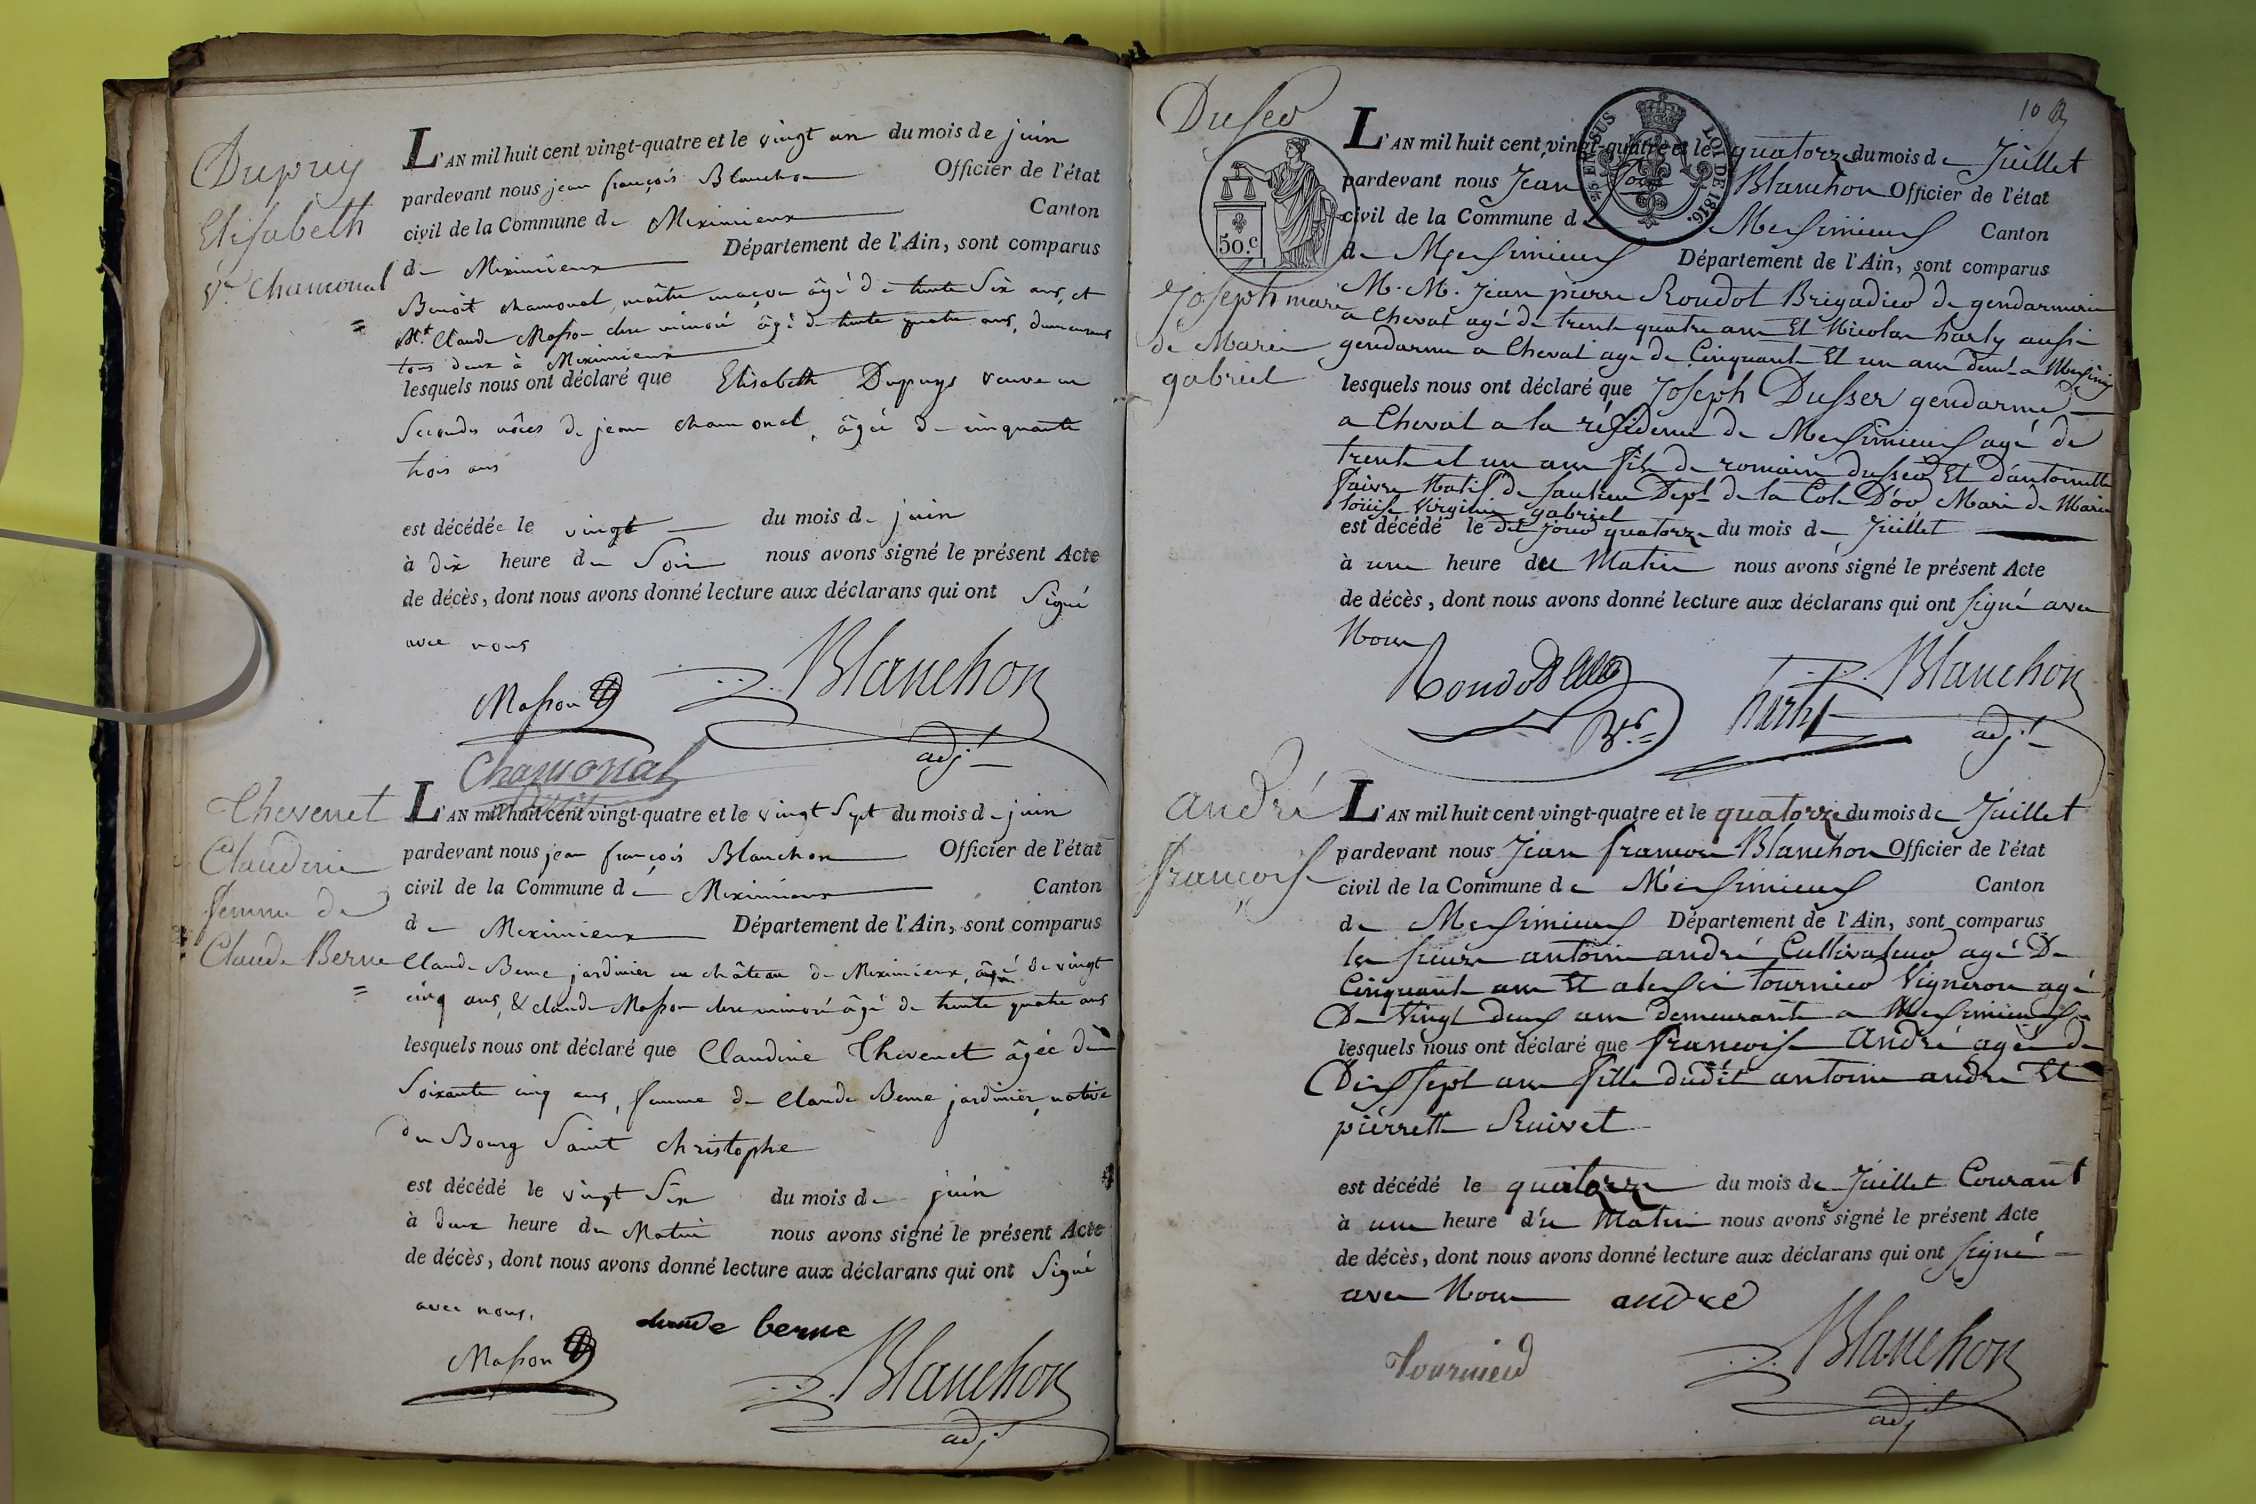 Dupuy
Elisabeth
Vᵉ Chamonal
=
L'AN mil huit cent vingt-quatre et le vingt un du mois de juin
pardevant nous jean françois Blanchon Officier de l'état
civil de la Commune de Meximieux Canton
de Meximieux Département de l'Ain, sont comparus
Benoit chamonal, maître maçon âgé de trente Six ans, et
Mʳ Claude Masson clerc minoré âgé de trente quatre ans, demeurans
tous deux à Meximieux
lesquels nous ont déclaré que Elisabeth Dupuys veuve en
Secondes nôces de jean chamonal, âgée de cinquante
trois ans
est décédée le vingt du mois de juin
à dix heure du Soir nous avons signé le présent Acte
de décès, dont nous avons donné lecture aux déclarans qui ont Signé
avec nous
Masson Blanchon
adjᵗ
Chamonal
Thevenet
Claudine
femme de
Claude Berne
=
L'AN mil huit cent vingt-quatre et le vingt Sept du mois de juin
pardevant nous jean françois Blanchon Officier de l'état
civil de la Commune de Meximieux Canton
de Meximieux Département de l'Ain, sont comparus
Claude Berne jardinier au château de Meximieux, âgé de vingt
cinq ans, & claude Masson clerc minoré âgé de trente quatre ans
lesquels nous ont déclaré que Claudine Thevenet âgée de
Soixante cinq ans, femme de Claude Berne jardinier, native
du Bourg Saint christophe
est décédé le vingt Six du mois de juin
à deux heure du Matin nous avons signé le présent Acte
de décès, dont nous avons donné lecture aux déclarans qui ont Signé
avec nous.
claude berne
Masson Blanchon
adjᵗ
10
Dusser
Joseph mari
de Marie
gabriel
50.c
⅖ EN SUS
LOI DE 1816.
L'AN mil huit cent vingt-quatre et le quatorze du mois de Juillet
pardevant nous Jean Blanchon Officier de l'état
civil de la Commune de Messimieux Canton
de Messimieux Département de l'Ain, sont comparus
M. M. Jean pierre Roudot Brigadier de gendarmerie
a Cheval agé de trente quatre ans Et Nicolas harly aussi
gendarme a Cheval agé de Cinquante Et un ans demt a Messimieux
lesquels nous ont déclaré que Joseph Dusser gendarme
a Cheval a la résidence de Messimieux agé de
trente et un ans fils de romain dusser Et d'antoinette
faivre Natif de saulieu Dept de la Cote D'or Mari de Marie
louise Virginie gabriel
est décédé le dit jour quatorze du mois de Juillet
à une heure du Matin nous avons signé le présent Acte
de décès, dont nous avons donné lecture aux déclarans qui ont signé avec
Nous
Blanchon
adjᵗ
andré
francoise
L'AN mil huit cent vingt-quatre et le quatorze du mois de Juillet
pardevant nous Jean francois Blanchon Officier de l'état
civil de la Commune de Messimieux Canton
de Messimieux Département de l'Ain, sont comparus
les sieurs antoine andré Cultivateur agé De
Cinquante ans Et tournier Vigneron agé
De Vingt deux ans demeurant a Messimieux
lesquels nous ont déclaré que francoise André agée de
Dix sept ans fille dudit antoine andre Et
pierrette Ruivet
est décédé le quatorze du mois de Juillet Courant
à une heure du Matin nous avons signé le présent Acte
de décès, dont nous avons donné lecture aux déclarans qui ont signé
avec Nous andre
Tournier Blanchon
adjᵗ